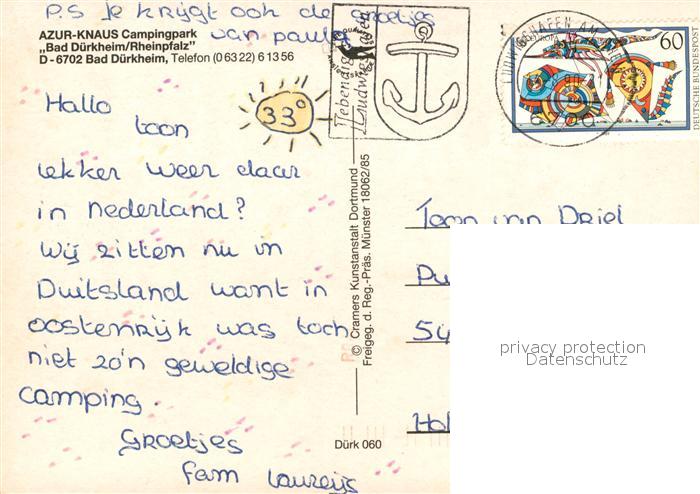 P.S Je krijgt ook de groetjes
van paula
AZUR-KNAUS Campingpark
„Bad Dürkheim/Rheinpfalz"
D-6702 Bad Dürkheim, Telefon (06322) 61356
Hallo
toon
33°
lekker weer daar
in nederland?
Wij zitten nu in
Duitsland want in
oostenrijk was toch
niet zo'n geweldige
camping.
Groetjes
fam Laureijs
Lebendiges
Ludwigshafen
© Cramers Kunstanstalt Dortmund
Freigeg. d. Reg.-Präs. Münster 18062/85
Dürk 060
60
DEUTSCHE BUNDESPOST
LUDWIGSHAFEN AM
Toon van Driel
Pu
54
Hol
privacy protection
Datenschutz